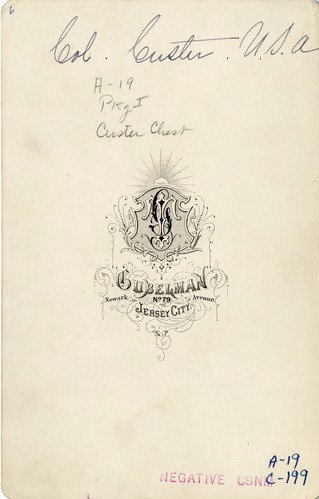 6
Col. Custer. U.S.A
A-19
Pkg I
Custer Chest
GUBELMAN
Newark No 79 Avenue.
JERSEY CITY
N.J.
A-19
NEGATIVE CBNM C-199